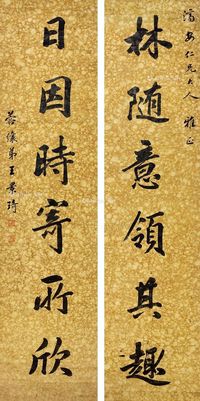 濤安仁兄大人雅正
林随意領其趣
日因時寄所欣
蓉儂弟王景琦